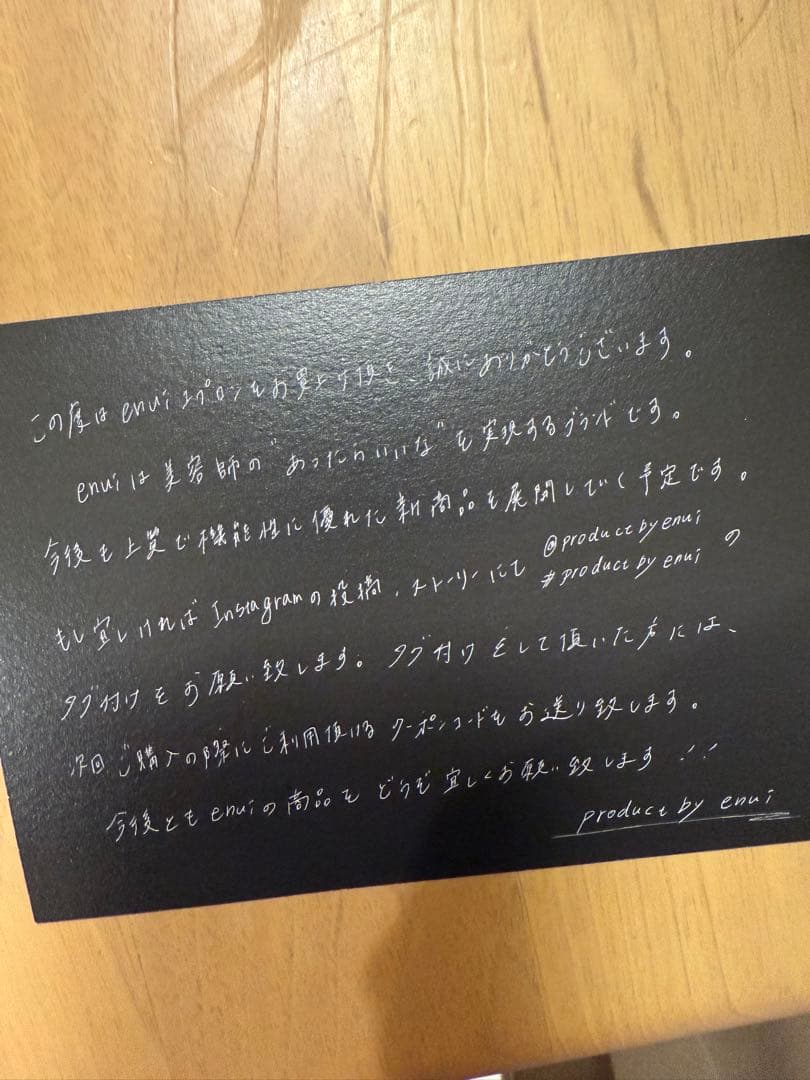 この度は enui エプロンをお買上げ頂き、誠にありがとうございます。
enui は美容師の"あったらいいな"を実現するブランドです。
今後も上質で機能性に優れた新商品を展開していく予定です。
もし宜しければ Instagram の投稿、ストーリーにて @product by enui
#product by enui の
タグ付けをお願い致します。タグ付けをして頂いた方には、
次回ご購入の際にご利用頂けるクーポンコードをお送り致します。
今後とも enui の商品をどうぞ宜しくお願い致します!!
product by enui